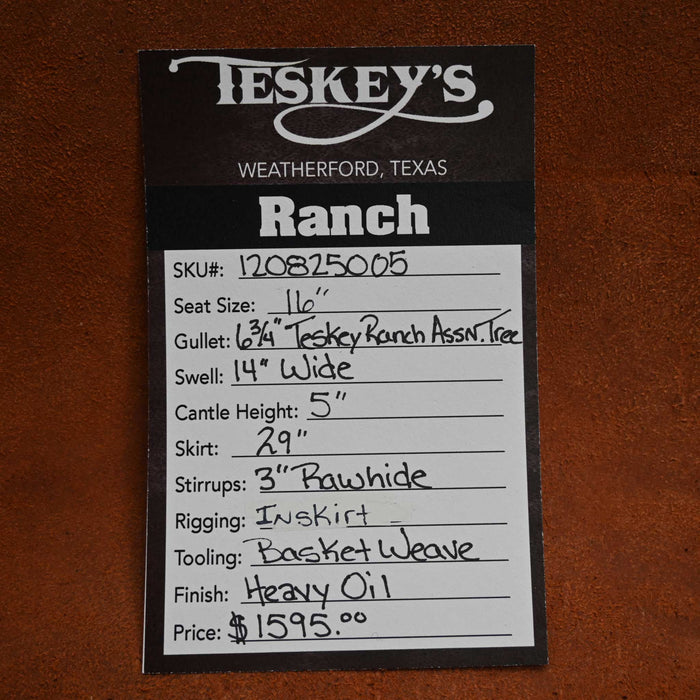 TESKEY'S
WEATHERFORD, TEXAS
Ranch
SKU#: 120825005
Seat Size: 16"
Gullet: 6 3/4" Teskey Ranch Assn. Tree
Swell: 14" Wide
Cantle Height: 5"
Skirt: 29"
Stirrups: 3" Rawhide
Rigging: Inskirt
Tooling: Basket Weave
Finish: Heavy Oil
Price: $1595.00